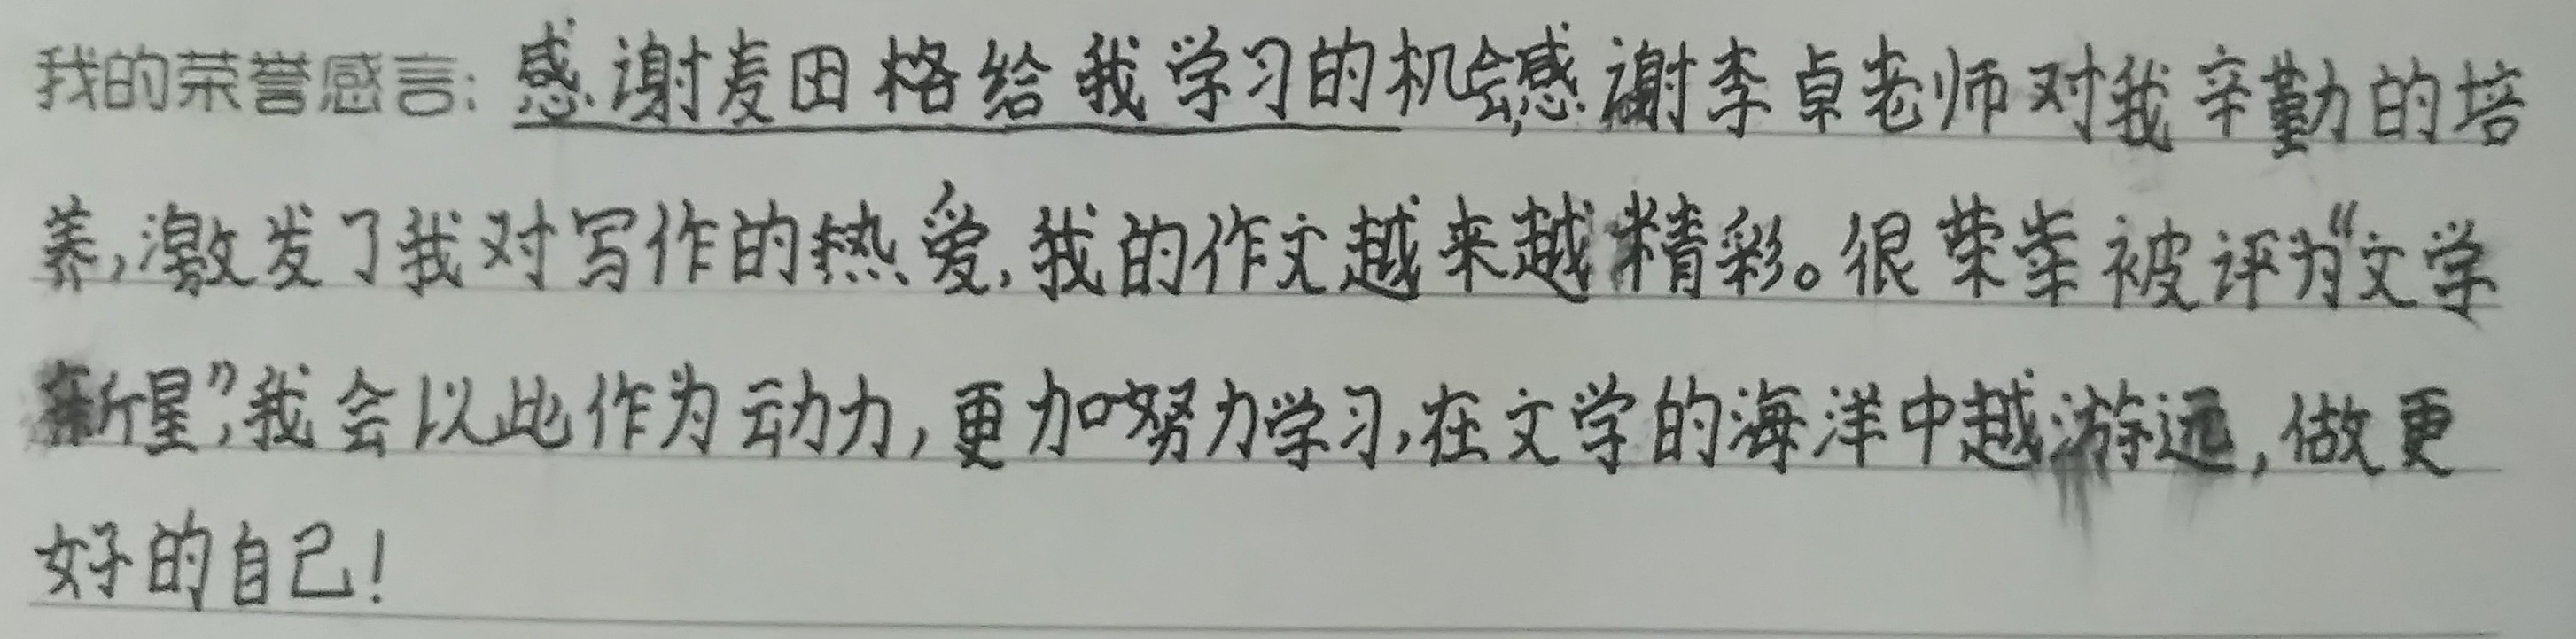 我的荣誉感言:感谢麦田格给我学习的机会,感谢李卓老师对我辛勤的培
养,激发了我对写作的热爱,我的作文越来越精彩。很荣幸被评为“文学
新星”,我会以此作为动力,更加努力学习,在文学的海洋中越游越远,做更
好的自己!